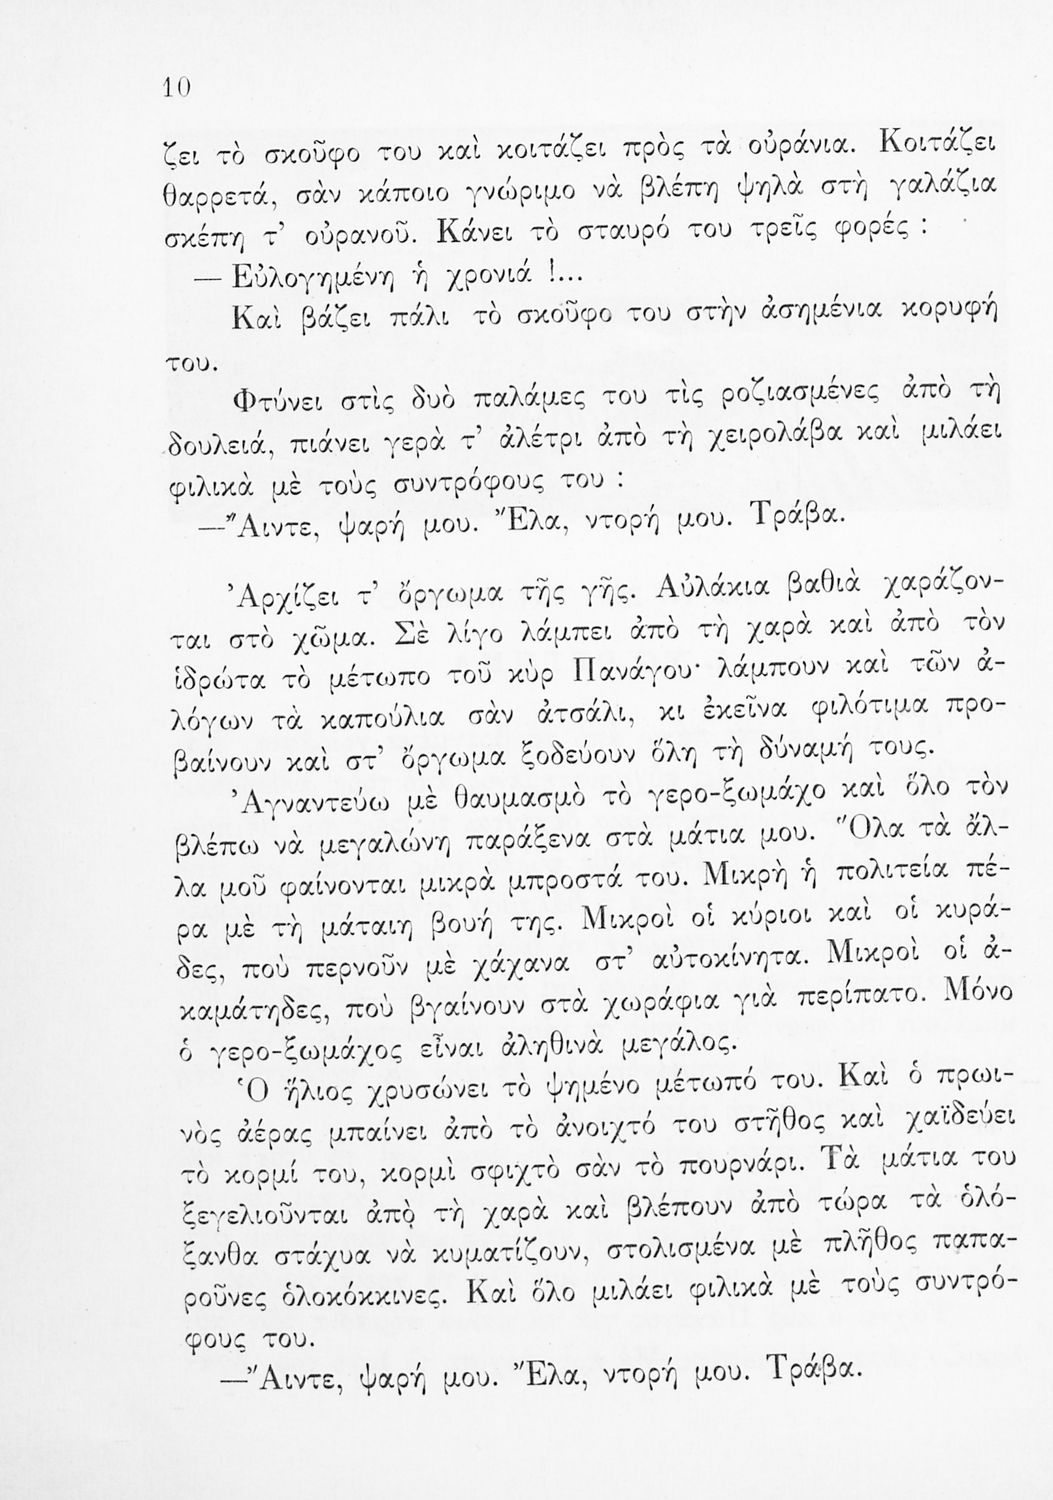 10
ζει τὸ σκοῦφο του καὶ κοιτάζει πρὸς τὰ οὐράνια. Κοιτάζει
θαρρετά, σὰν κάποιο γνώριμο νὰ βλέπη ψηλὰ στὴ γαλάζια
σκέπη τ’ οὐρανοῦ. Κάνει τὸ σταυρό του τρεῖς φορές :
— Εὐλογημένη ἡ χρονιά !...
Καὶ βάζει πάλι τὸ σκοῦφο του στὴν ἀσημένια κορυφή
του.
Φτύνει στὶς δυὸ παλάμες του τὶς ροζιασμένες ἀπὸ τὴ
δουλειά, πιάνει γερὰ τ’ ἀλέτρι ἀπὸ τὴ χειρολάβα καὶ μιλάει
φιλικὰ μὲ τοὺς συντρόφους του :
—Ἄιντε, ψαρή μου. Ἔλα, ντορή μου. Τράβα.
Ἀρχίζει τ’ ὄργωμα τῆς γῆς. Αὐλάκια βαθιὰ χαράζον-
ται στὸ χῶμα. Σὲ λίγο λάμπει ἀπὸ τὴ χαρὰ καὶ ἀπὸ τὸν
ἱδρώτα τὸ μέτωπο τοῦ κὺρ Πανάγου· λάμπουν καὶ τῶν ἀ-
λόγων τὰ καπούλια σὰν ἀτσάλι, κι ἐκεῖνα φιλότιμα προ-
βαίνουν καὶ στ’ ὄργωμα ξοδεύουν ὅλη τὴ δύναμή τους.
Ἀγναντεύω μὲ θαυμασμὸ τὸ γερο-ξωμάχο καὶ ὅλο τὸν
βλέπω νὰ μεγαλώνη παράξενα στὰ μάτια μου. Ὅλα τὰ ἄλ-
λα μοῦ φαίνονται μικρὰ μπροστά του. Μικρὴ ἡ πολιτεία πέ-
ρα μὲ τὴ μάταιη βουή της. Μικροὶ οἱ κύριοι καὶ οἱ κυρά-
δες, ποὺ περνοῦν μὲ χάχανα στ’ αὐτοκίνητα. Μικροὶ οἱ ἀ-
καμάτηδες, ποὺ βγαίνουν στὰ χωράφια γιὰ περίπατο. Μόνο
ὁ γερο-ξωμάχος εἶναι ἀληθινὰ μεγάλος.
Ὁ ἥλιος χρυσώνει τὸ ψημένο μέτωπό του. Καὶ ὁ πρωι-
νὸς ἀέρας μπαίνει ἀπὸ τὸ ἀνοιχτό του στῆθος καὶ χαϊδεύει
τὸ κορμί του, κορμὶ σφιχτὸ σὰν τὸ πουρνάρι. Τὰ μάτια του
ξεγελιοῦνται ἀπὸ τὴ χαρὰ καὶ βλέπουν ἀπὸ τώρα τὰ ὁλό-
ξανθα στάχυα νὰ κυματίζουν, στολισμένα μὲ πλῆθος παπα-
ροῦνες ὁλοκόκκινες. Καὶ ὅλο μιλάει φιλικὰ μὲ τοὺς συντρό-
φους του.
—Ἄιντε, ψαρή μου. Ἔλα, ντορή μου. Τράβα.